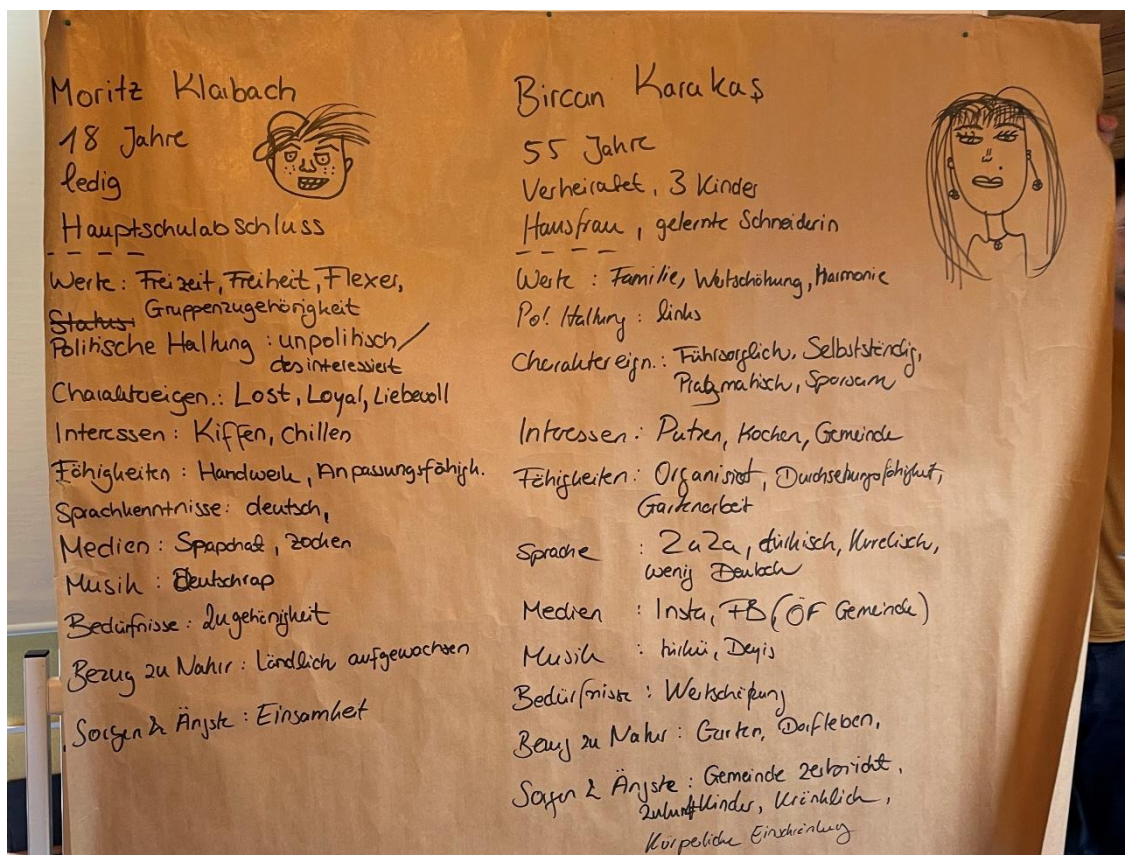 Moritz Klaibach
18 Jahre
ledig
Hauptschulabschluss
Werte: Freizeit, Freiheit, Flexer,
Status: Gruppenzugehörigkeit
Politische Haltung: unpolitisch/
desinteressiert
Charaktereigen.: Lost, Loyal, Liebevoll
Interessen: Kiffen, Chillen
Fähigkeiten: Handwerk, Anpassungsfähigk.
Sprachkenntnisse: deutsch,
Medien: Snapchat, zocken
Musik: Deutschrap
Bedürfnisse: Zugehörigkeit
Bezug zu Natur: Ländlich aufgewachsen
Sorgen & Ängste: Einsamkeit
Bircan Karakaş
55 Jahre
Verheiratet, 3 Kinder
Hausfrau, gelernte Schneiderin
Werte: Familie, Wertschöhung, Harmonie
Pol. Haltung: links
Charaktereign.: Führsorglich, Selbstständig,
Pragmatisch, Sparsam
Interessen: Putzen, Kochen, Gemeinde
Fähigkeiten: Durchsetzungsfähigkeit,
Gartenarbeit
Sprache: ZaZa, türkisch, Kurdisch,
wenig Deutsch
Medien: Insta, FB (ÖF Gemeinde)
Musik: türkü, Deyis
Bedürfnisse: Wertschätzung
Bezug zu Natur: Garten, Dorfleben,
Sorgen & Ängste: Gemeinde zerbricht,
Zukunft Kinder, Kränklich,
Körperliche Einschränkung